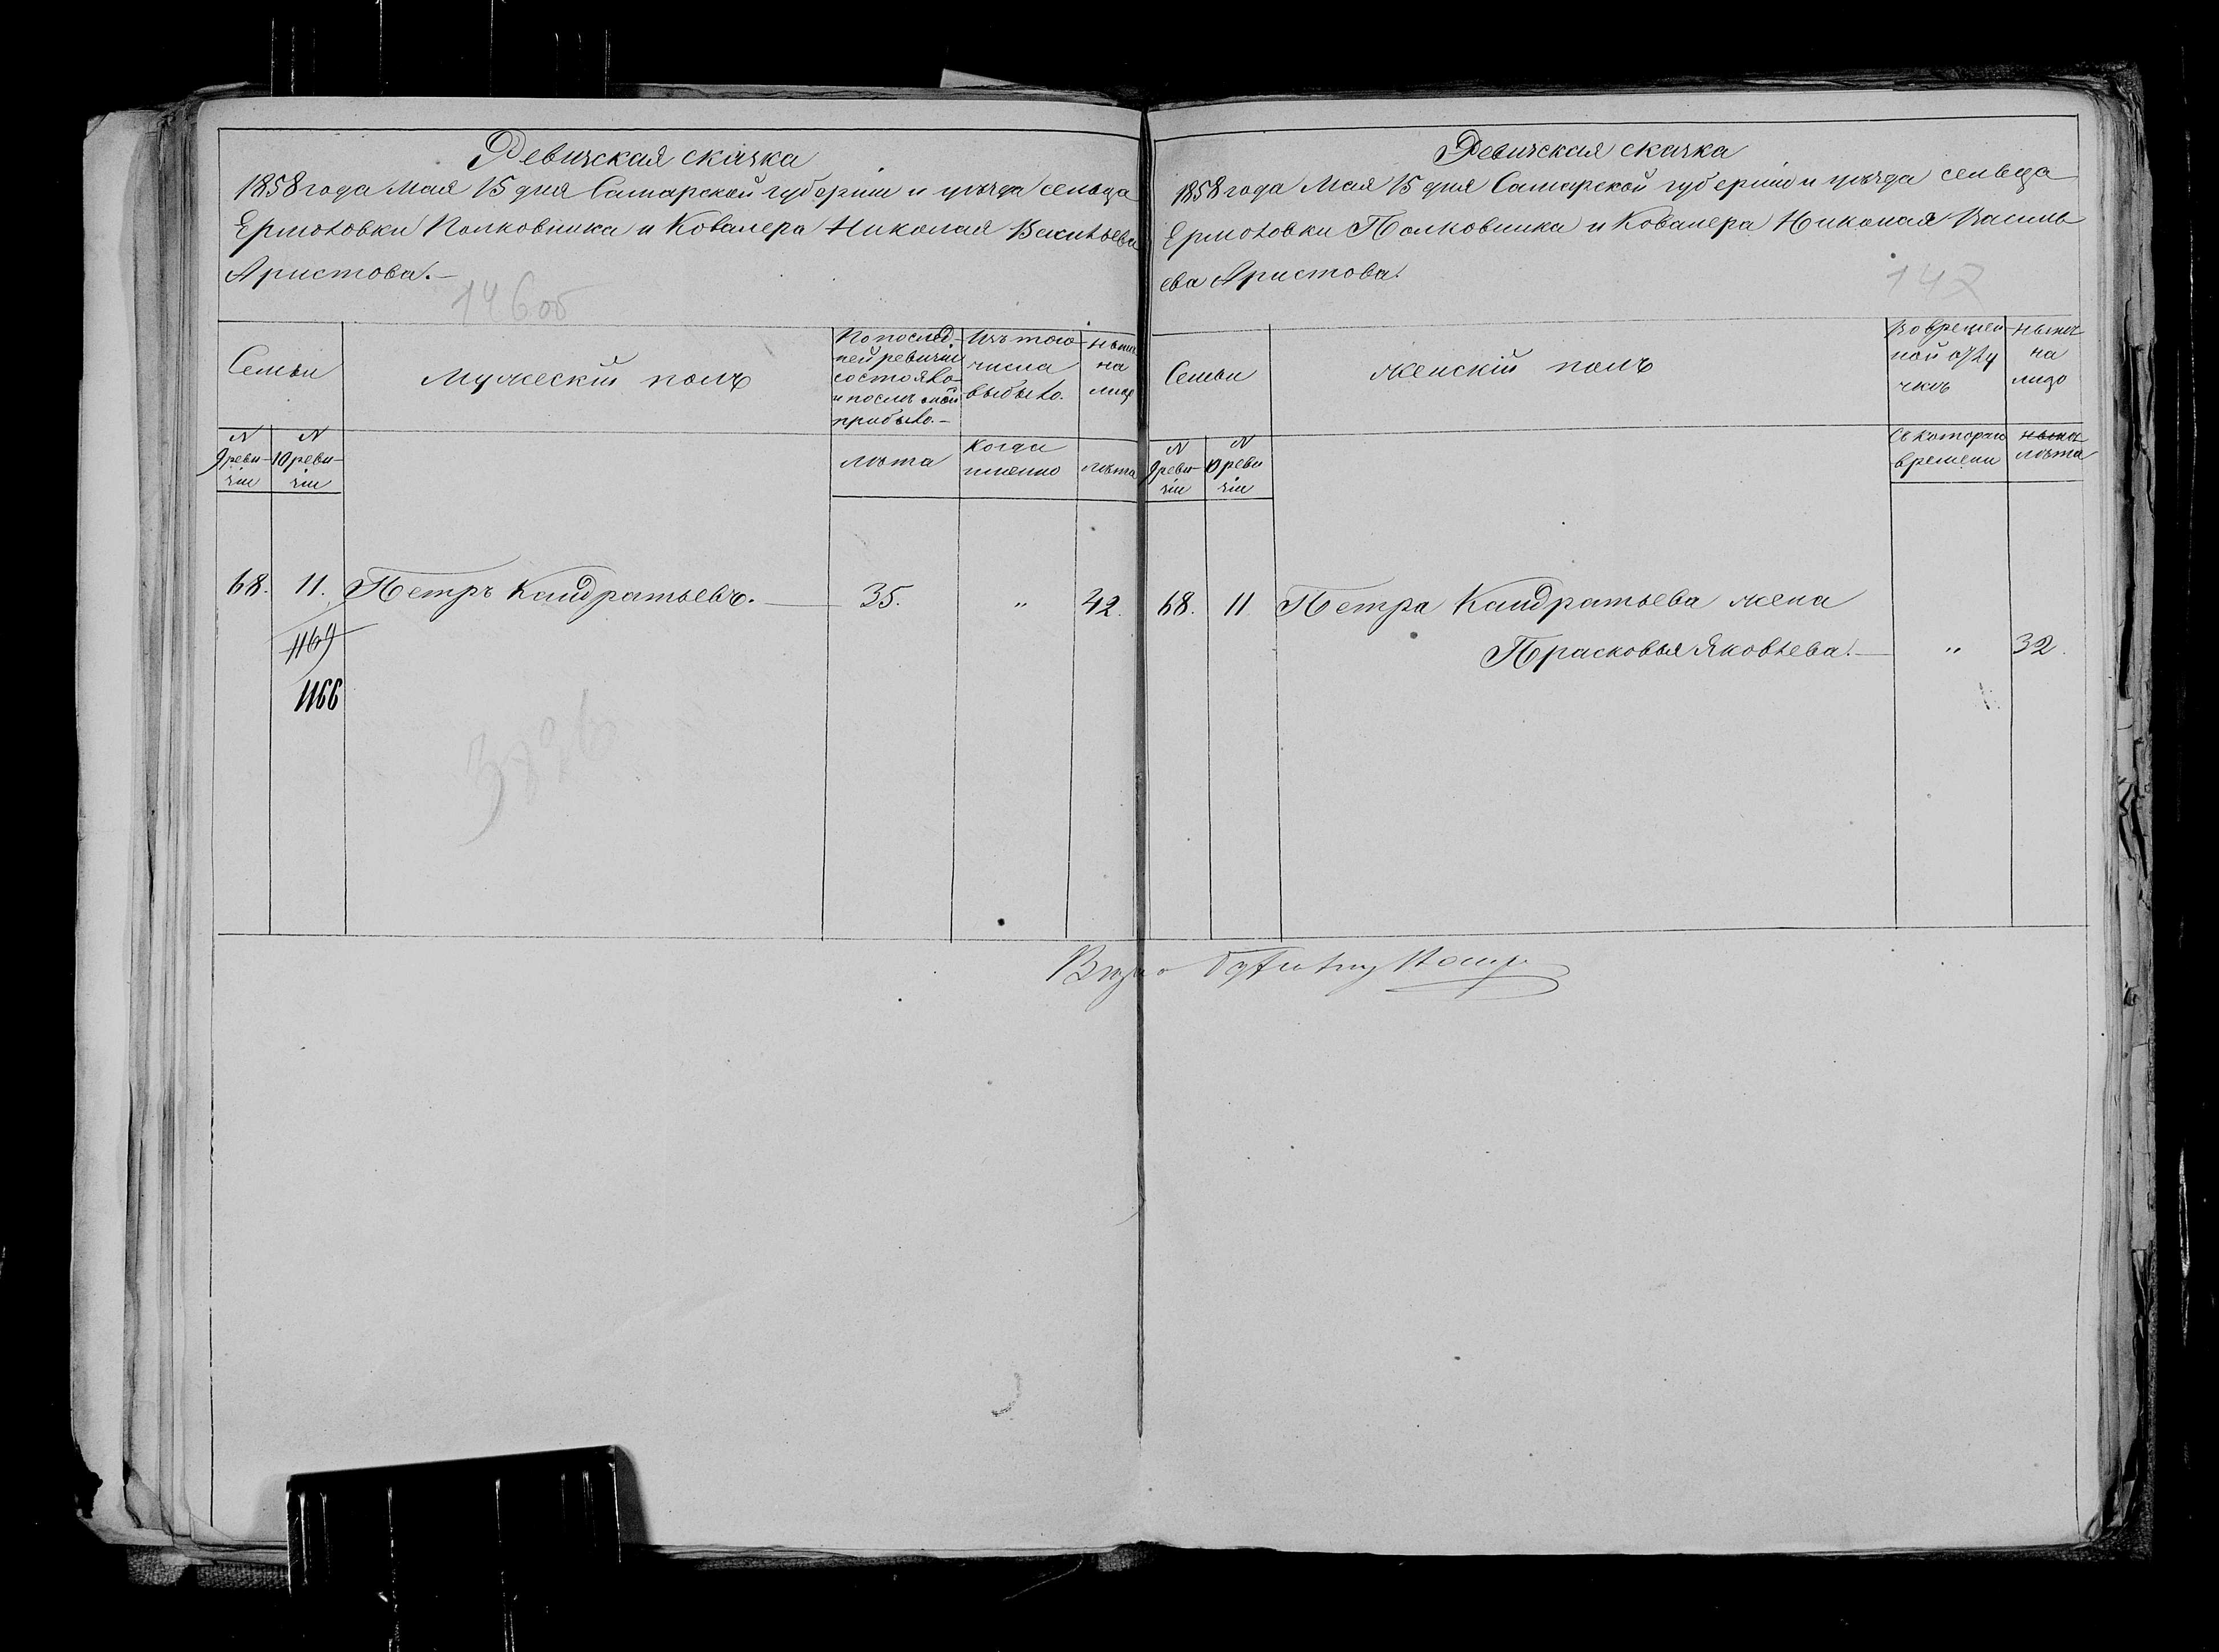 Ревизская сказка
1858 года Мая 15 дня Самарской губерніи и уѣзда сельца
Ермоловки Полковника и Ковалера Николая Васильева
Аристова.
146об
Семьи
Мужескій полъ
По послѣд-
ней ревизіи
состояло
и послѣ оной
прибыло.
Изъ того
числа
выбыло.
Нынѣ
на
лицо
N
9 реви-
зіи
N
10 реви-
зіи
лѣта
Когда
именно
лѣта
68. 11. Петръ Кандратьевъ. 35. " 42.
1169
1166
Ревизская сказка
1858 года Мая 15 дня Самарской губерніи и уѣзда сельца
Ермоловки Полковника и Ковалера Николая Василь
ева Аристова.
147
Семьи
Женскій полъ
Во времен-
ной отлу
чкѣ
Нынѣ
на
лицо
N
9 реви-
зіи
N
10 реви
зіи
Съ котораго
времени
лѣта
68. 11. Петра Кандратьева жена
Прасковья Яковлева. " 32.